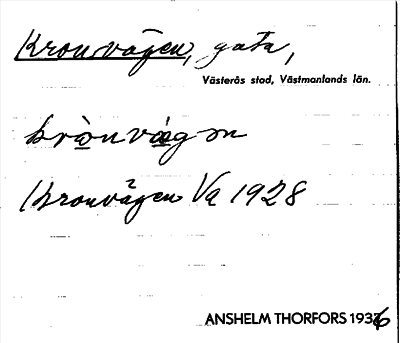 Kronvägen, gata,
Västerås stad, Västmanlands län.
krònvägen
Kronvägen Va 1928
ANSHELM THORFORS 1936